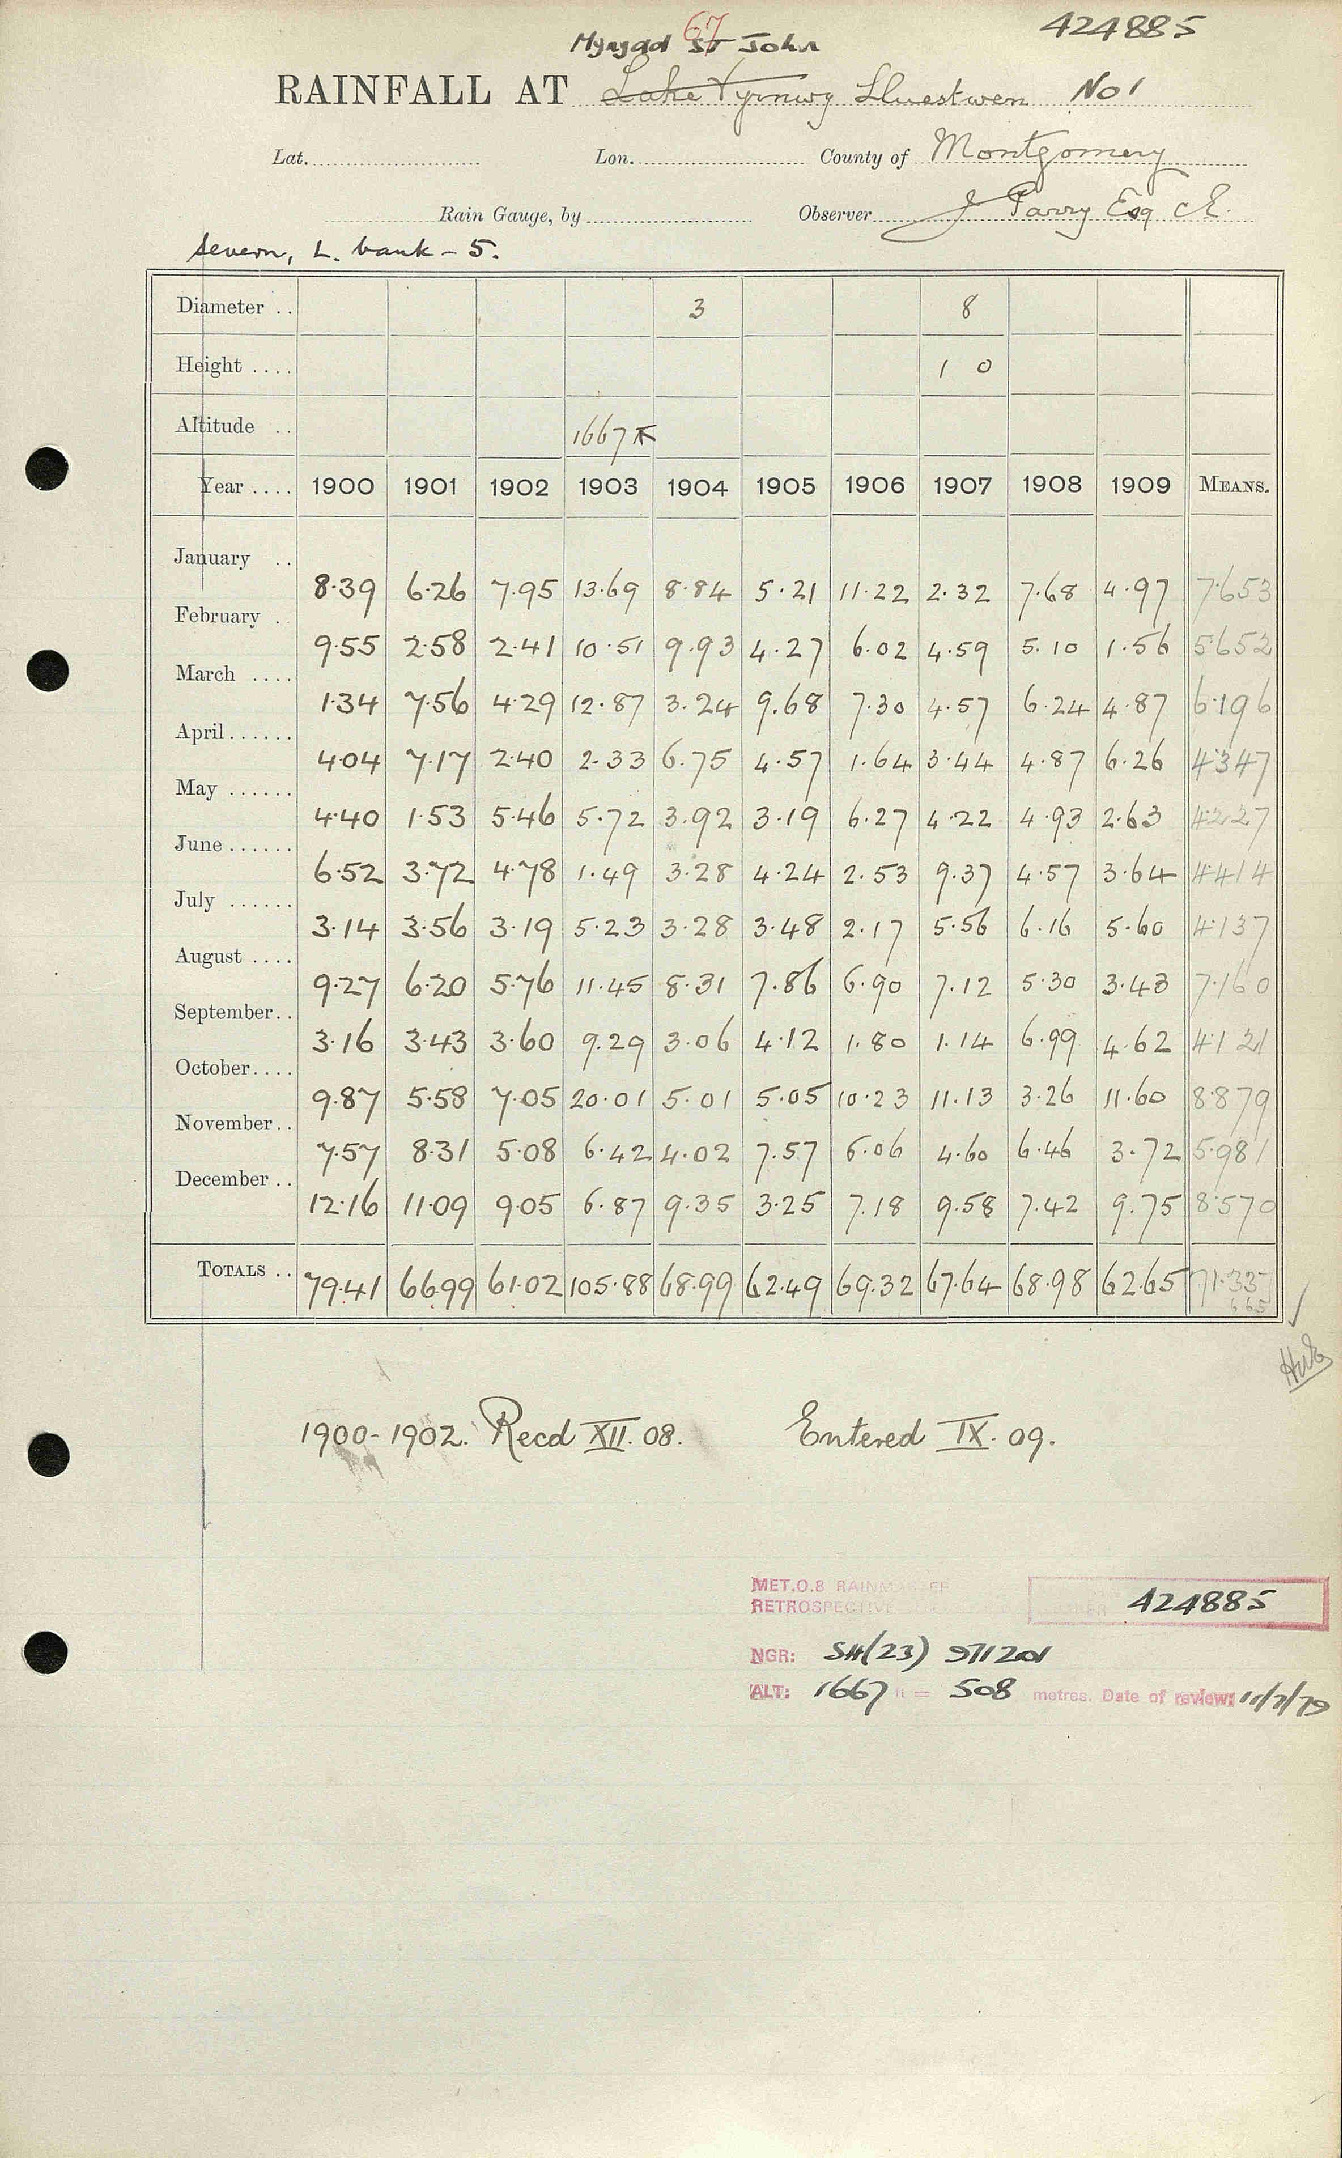 67
424885
Mynydd St John
RAINFALL AT Lake Vyrnwy Lluestwen No 1
Lat. Lon. County of Montgomery
Rain Gauge, by Observer J Parry Esq CE.
Severn, L. bank - 5.
Diameter .. 3 8
Height .... 1 0
Altitude .. 1667
Year .... 1900 1901 1902 1903 1904 1905 1906 1907 1908 1909 MEANS.
January .. 8.39 6.26 7.95 13.69 8.84 5.21 11.22 2.32 7.68 4.97 7.653
February . 9.55 2.58 2.41 10.51 9.93 4.27 6.02 4.59 5.10 1.56 5.652
March .... 1.34 7.56 4.29 12.87 3.24 9.68 7.30 4.57 6.24 4.87 6.196
April...... 4.04 7.17 2.40 2.33 6.75 4.57 1.64 3.44 4.87 6.26 4.347
May ...... 4.40 1.53 5.46 5.72 3.92 3.19 6.27 4.22 4.93 2.63 4.227
June ...... 6.52 3.72 4.78 1.49 3.28 4.24 2.53 9.37 4.57 3.64 4.414
July ...... 3.14 3.56 3.19 5.23 3.28 3.48 2.17 5.56 6.16 5.60 4.137
August .... 9.27 6.20 5.76 11.45 8.31 7.86 6.90 7.12 5.30 3.43 7.160
September.. 3.16 3.43 3.60 9.29 3.06 4.12 1.80 1.14 6.99 4.62 4.121
October.... 9.87 5.58 7.05 20.01 5.01 5.05 10.23 11.13 3.26 11.60 8.879
November.. 7.57 8.31 5.08 6.42 4.02 7.57 6.06 4.60 6.46 3.72 5.981
December .. 12.16 11.09 9.05 6.87 9.35 3.25 7.18 9.58 7.42 9.75 8.570
TOTALS .. 79.41 66.99 61.02 105.88 68.99 62.49 69.32 67.64 68.98 62.65 71.337
1900-1902. Recd XII. 08. Entered IX. 09.
MET.O.8
RETROSPECTIVE 424885
NGR: SH(23) 971201
ALT: 1667 ft = 508 metres. Date of review: 11/7/79